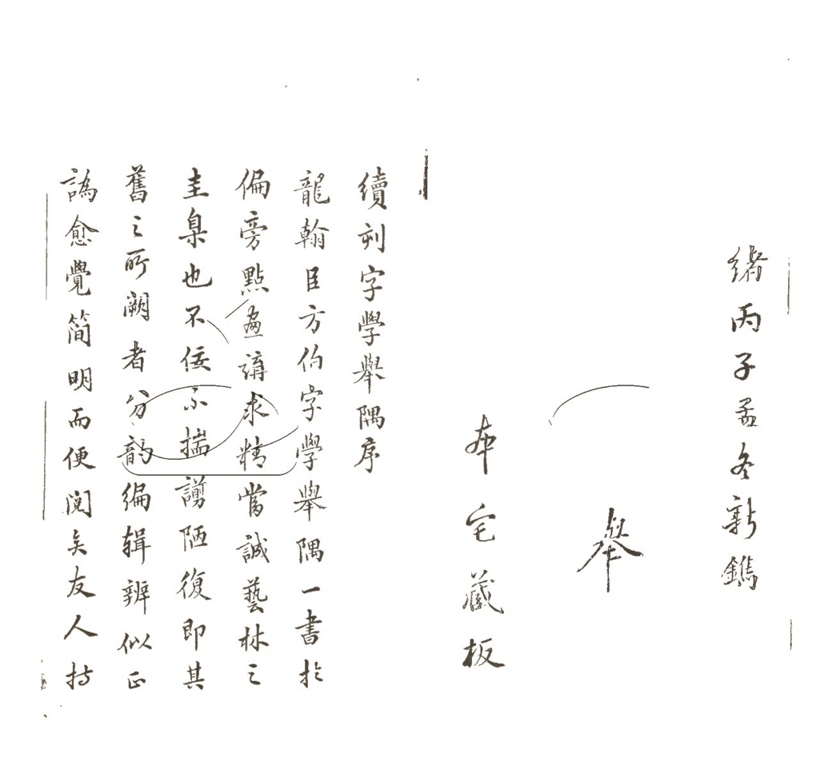 緒丙子孟冬新鐫
舉
本宅藏板
續刻字學舉隅序
龍翰臣方伯字學舉隅一書於
偏旁點畫講求精當誠藝林之
圭臬也不佞不揣謭陋復即其
舊之所闕者分韵編輯辨似正
譌愈覺簡明而便閱矣友人持